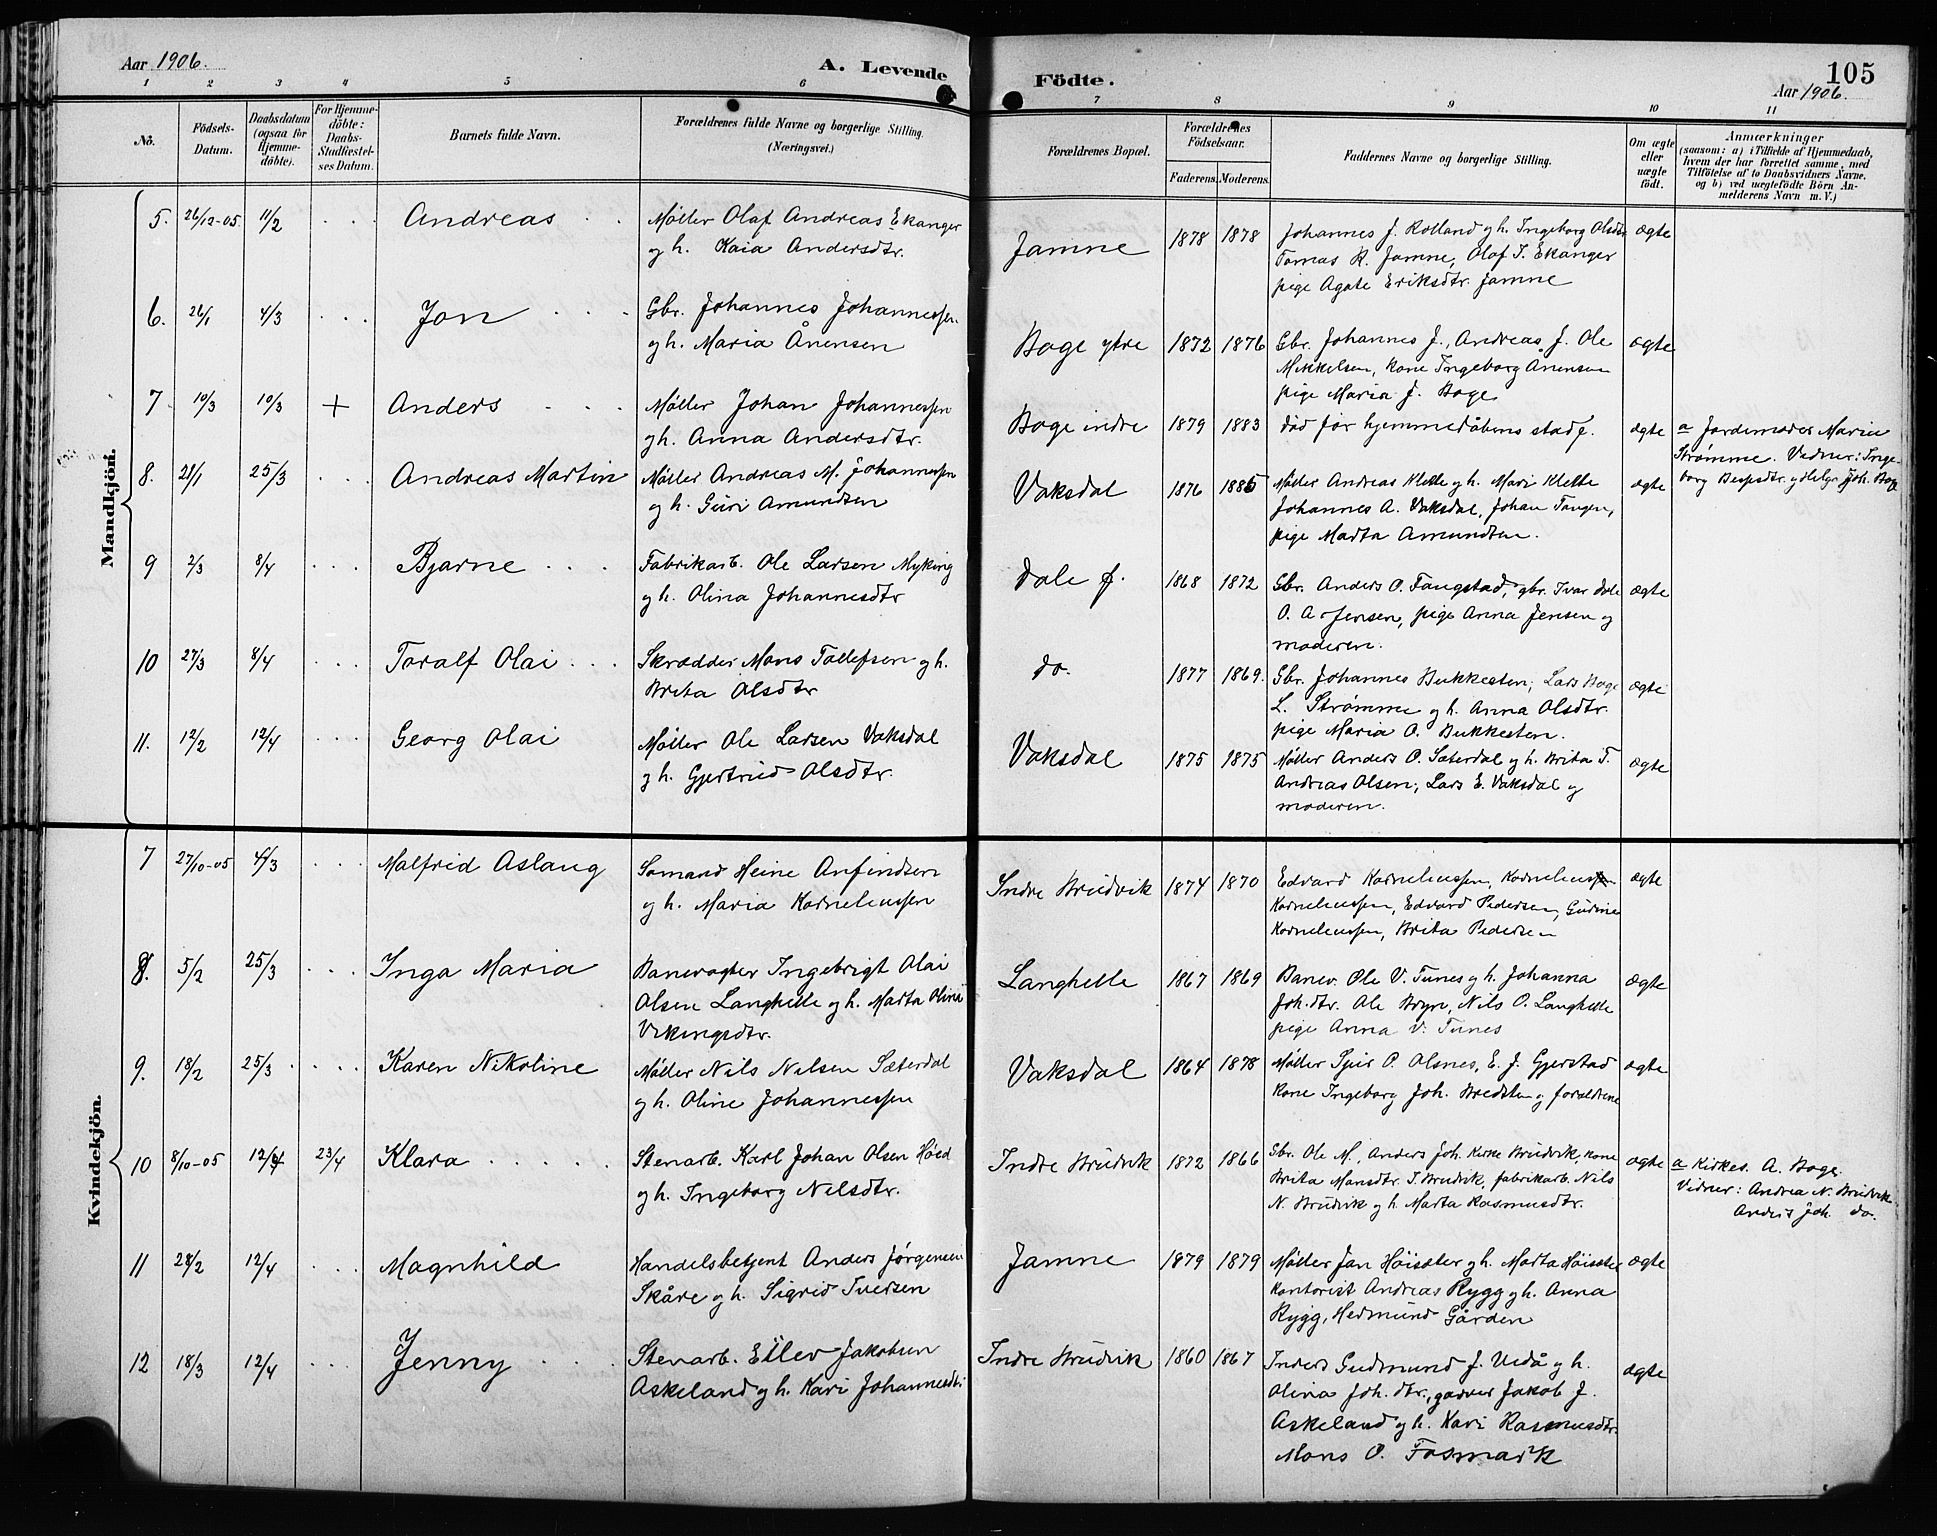 Aar 1906.
A. Levende
Födte.
105
Aar 1906.
1 2 3 4 5 6 7 8 9 10 11
No.
Födsels-
Datum.
Daabsdatum
(ogsaa for
Hjemme-
döbte).
For Hjemme-
döbte:
Daabs-
Stadfæstel-
ses Datum.
Barnets fulde Navn.
Forældrenes fulde Navne og borgerlige Stilling.
(Næringsvei.)
Forældrenes Bopæl.
Forældrenes
Födselsaar.
Faderens. Moderens.
Faddernes Navne og borgerlige Stilling.
Om ægte
eller
uægte
födt.
Anmærkninger
(saasom: a) i Tilfælde af Hjemmedaab,
hvem der har forrettet samme, med
Tilföielse af to Daabsvidners Navne,
og b) ved uægtefödte Börn An-
melderens Navn m. V.)
Mandkjön.
5. 26/12-05. 11/2 Andreas
Møller Olaf Andreas Ekanger
og h. Kaia Andersdtr.
Jamne 1878 1878
Johannes J. Rolland og h. Ingeborg Olsdtr
Tomas K. Jamne, Olaf J. Ekanger
pige Agate Eriksdtr. Jamne
ægte
6. 26/1 4/3 Jon
Gbr. Johannes Johannessen
og h. Maria Ånensen
Boge ytre 1872 1876
Gbr. Johannes J., Andreas J. Ole
Mikkelsen, kone Ingeborg Ånensen
pige Maria J. Boge
ægte
7 10/3 10/3 + Anders
Møller Johan Johannessen
og h. Anna Andersdtr.
Boge indre 1879 1883
død før hjemmedåbens stadf.
ægte
a Jordemoder Marie
Strømme. Vidner: Inge-
borg Bespdtr. og Helge Joh. Boge
8. 21/1 25/3 Andreas Martin
Møller Andreas M. Johannessen
og h. Guri Amundsen
Vaksdal 1876 1885
Møller Andreas Klette og h. Mari Klette
Johannes A. Vaksdal, Johan Tangen,
pige Marta Amundsen.
ægte
9 2/3 8/4 Bjarne
Fabrikarb. Ole Larsen Myking
og h. Olina Johannesdtr
Dale f. 1868 1872
Gbr. Anders O. Fangstad, gbr. Ivar Dale
O. A. Jensen, pige Anna Jensen og
moderen.
ægte
10 27/3 8/4 Toralf Olai
Skrædder Mons Tollefsen og h.
Brita Olsdtr
do. 1877 1869.
Gbr. Johannes Bukkesten, Lars Boge
L. Strømme og h. Anna Olsdtr.
pige Maria O. Bukkesten.
ægte
11. 12/2 12/4 Georg Olai
Møller Ole Larsen Vaksdal
og h. Gjertrud Olsdtr.
Vaksdal 1875 1875
Møller Anders O. Sæterdal og h. Brita T.
Andreas Olsen, Lars E. Vaksdal og
moderen.
ægte
Kvindekjön.
7 27/10-05 4/3 Malfrid Aslaug
Sømand Heine Anfindsen
og h. Maria Korneliussen
Indre Bruvik 1874 1870
Edvard Korneliussen, Korneliussen
Korneliussen, Edvard Pedersen, Gurine
Korneliussen, Brita Pedersen
ægte
8. 5/2 25/3 Inga Maria
Banevogter Ingebrigt Olai
Olsen Langhelle og h. Marta Olina
Vikingsdtr.
Langhelle 1867 1869
Banev. Ole V. Tunes og h. Johanna
Joh.dtr. Ole Bryn, Nils O. Langhelle
pige Anna V. Tunes
ægte
9. 18/2 25/3 Karen Nikoline
Møller Nils Nilsen Sæterdal
og h. Oline Johannessen
Vaksdal 1864 1878
Møller Sjur P. Olsnes, E. J. Gjerstad
kone Ingeborg Joh. Bredsten og forældrene
ægte
10 8/10-05 12/4 23/4 Klara
Stenarb. Karl Johan Olsen Høed
og h. Ingeborg Nilsdtr.
Indre Bruvik 1872 1866
Gbr. Ole M., Anders Joh. Kirke Bruvik, kone
Brita Mansdtr. I. Bruvik, fabrikarb. Nils
N. Bruvik og h. Marta Rasmusdtr.
ægte
a Kirkes. A. Boge.
Vidner: Andrea N. Bruvik
Anders Joh. do.
11 28/2 12/4 Magnhild
Handelsbetjent Anders Jørgensen
Skåre og h. Sigrid Iversen
Jamne 1879 1879
Møller Jan Høisæter og h. Marta Høisæter
kontorist Andreas Rygg og h. Anna
Rygg, Hedmund Gården
ægte
12 18/3 12/4 Jenny
Stenarb. Eilev Jakobsen
Askeland og h. Kari Johannesdtr.
Indre Bruvik 1860 1867
Inders Gudmund J. Vedå og h.
Olina Joh. dtr., garver Jakob J.
Askeland og h. Kari Rasmusdtr.
Mons O. Fosmark
ægte